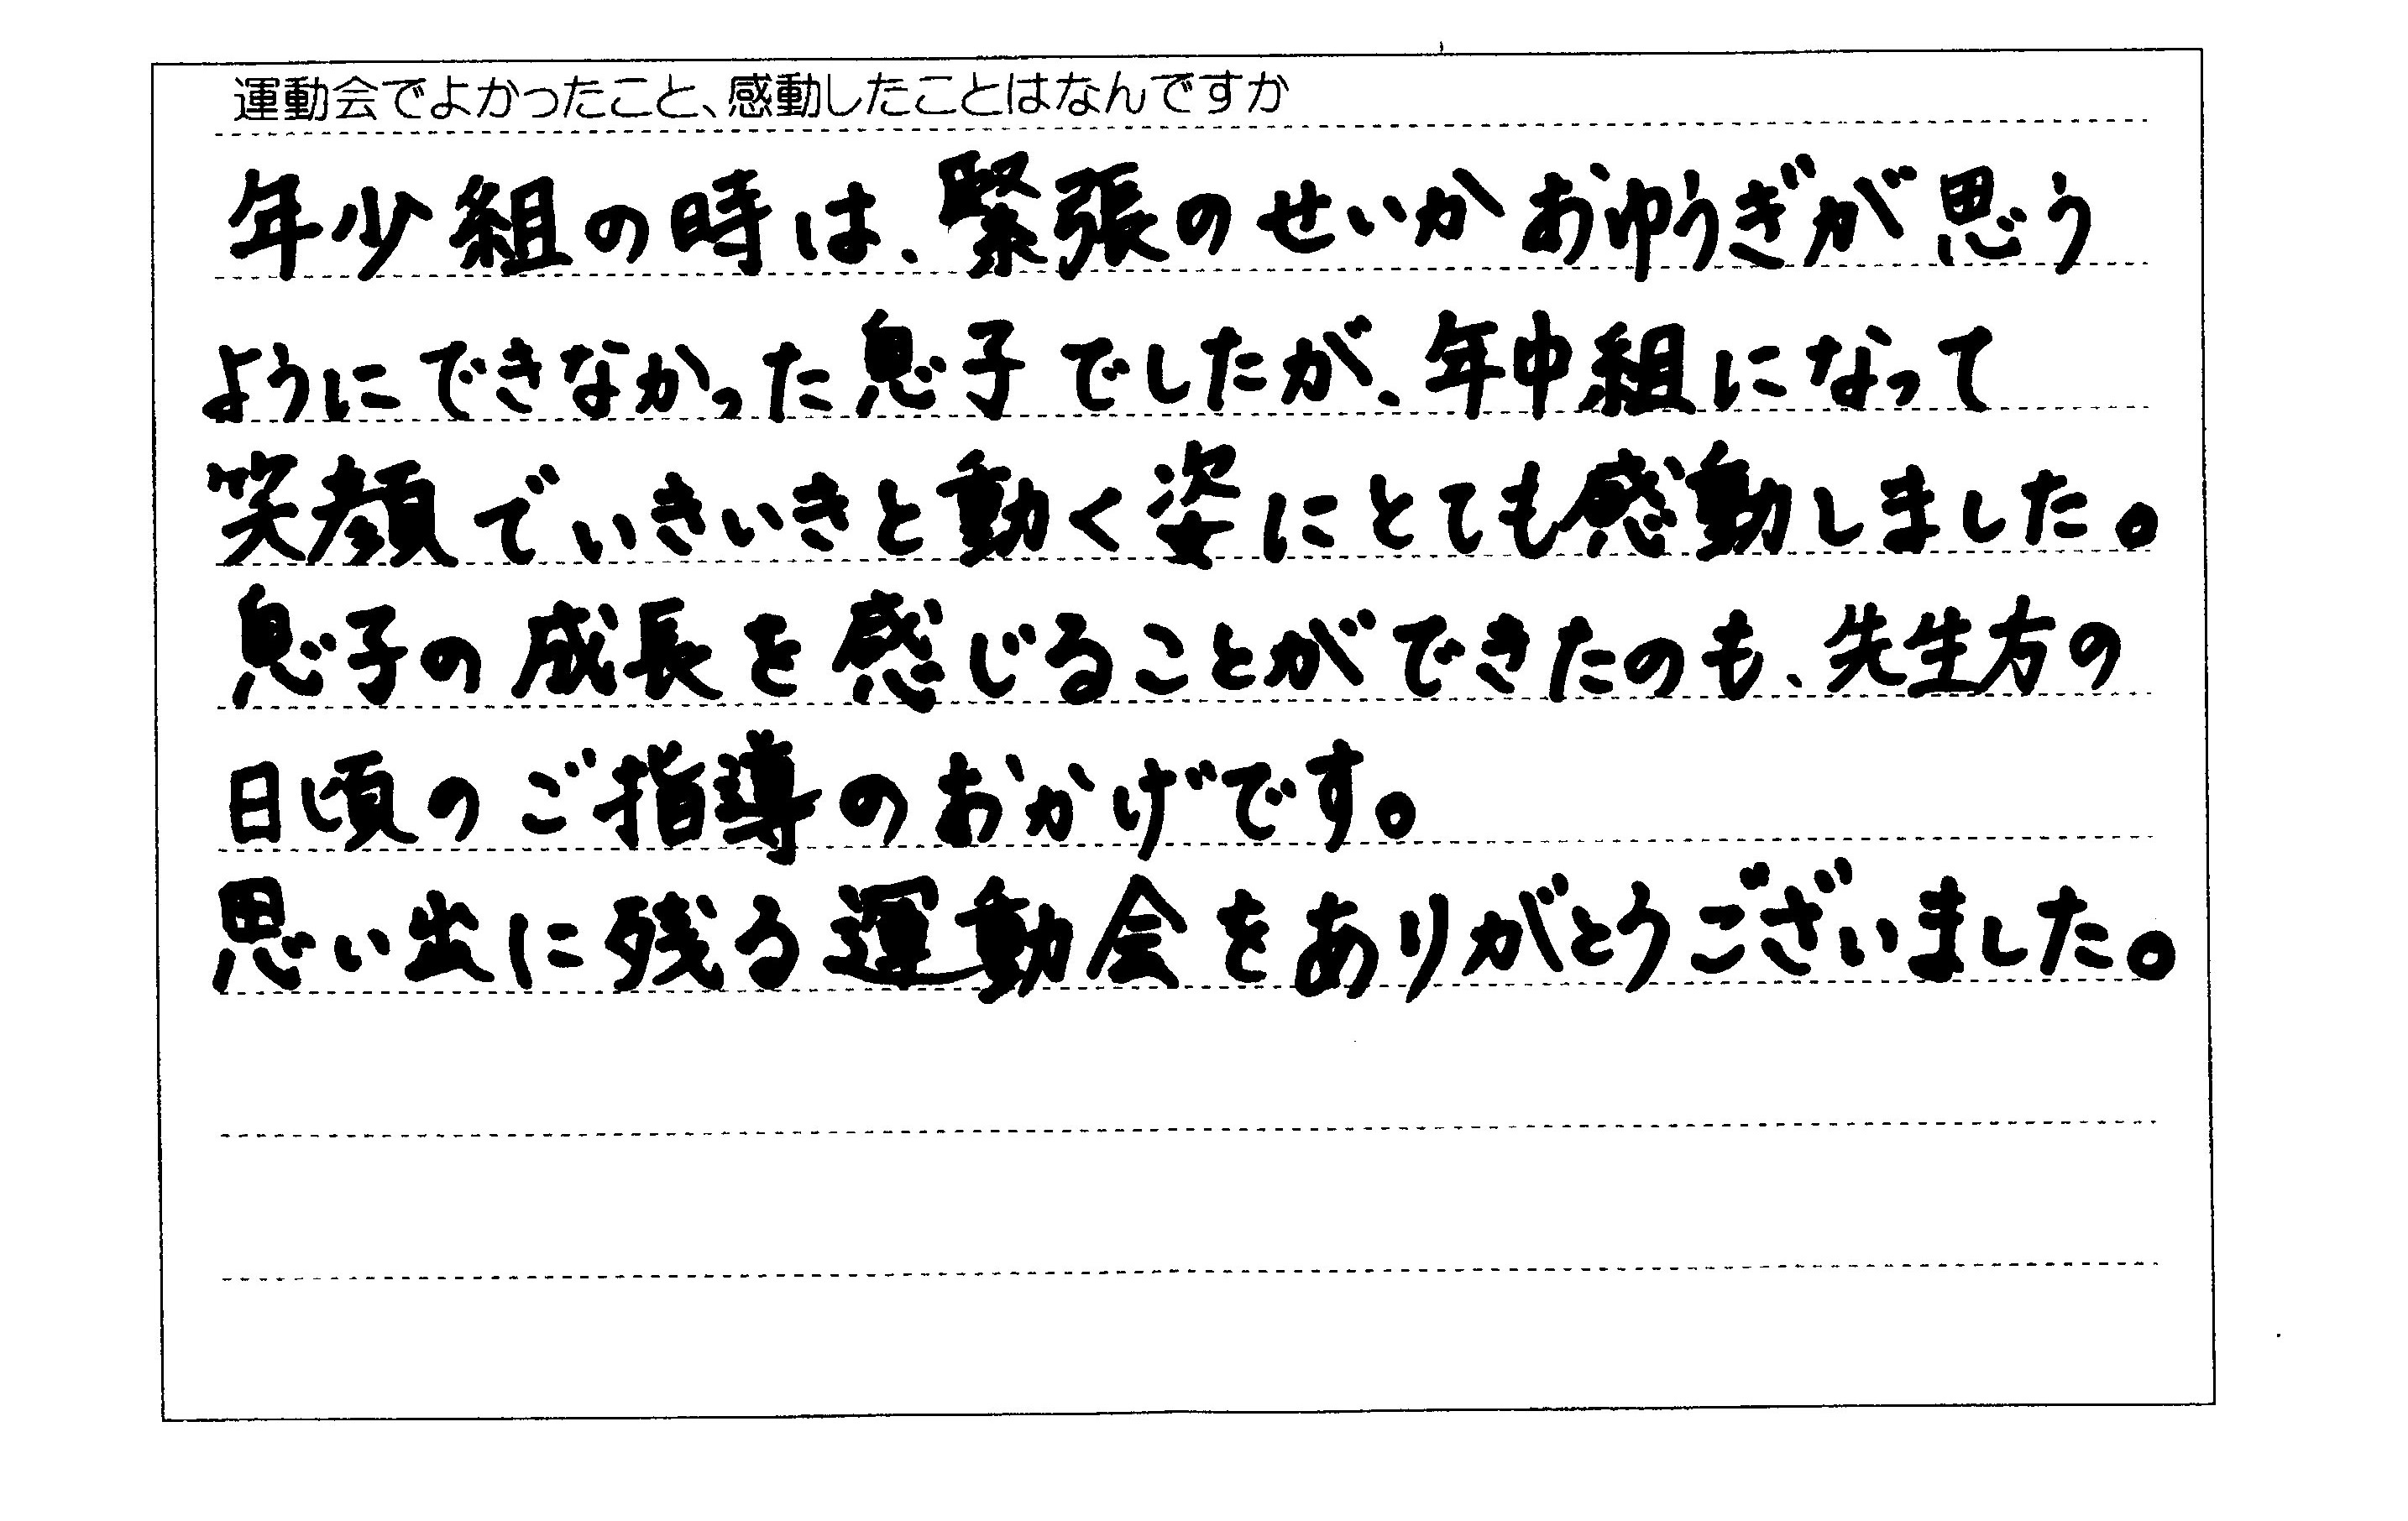 運動会でよかったこと、感動したことはなんですか
年少組の時は、緊張のせいかおゆうぎが思う
ようにできなかった息子でしたが、年中組になって
笑顔でいきいきと動く姿にとても感動しました。
息子の成長を感じることができたのも、先生方の
日頃のご指導のおかげです。
思い出に残る運動会をありがとうございました。